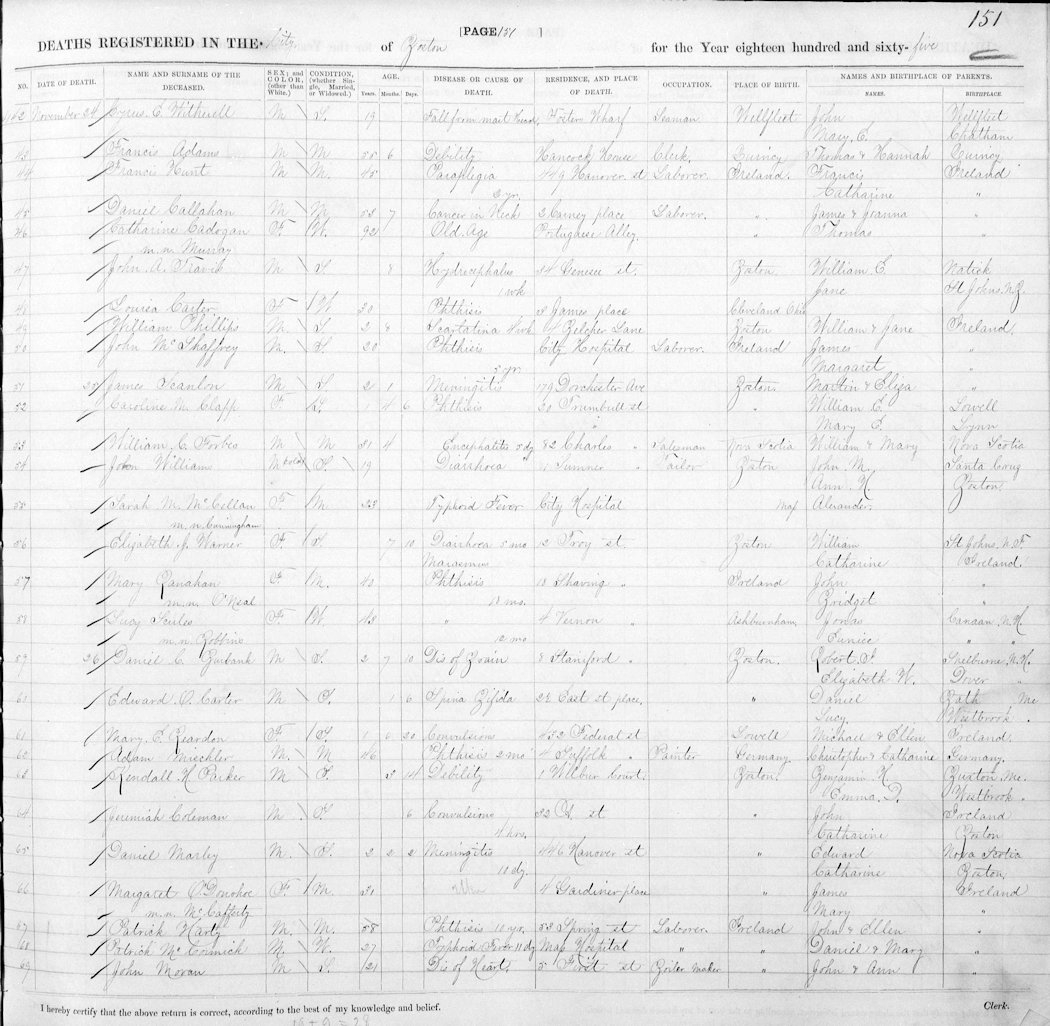 151
[PAGE 151 ]
DEATHS REGISTERED IN THE City of Boston for the Year eighteen hundred and sixty-five
NO. DATE OF DEATH. NAME AND SURNAME OF THE DECEASED. SEX; and COLOR, (other than White.) CONDITION, (whether Single, Married, or Widowed.) AGE. Years. Months. Days. DISEASE OR CAUSE OF DEATH. RESIDENCE, AND PLACE OF DEATH. OCCUPATION. PLACE OF BIRTH. NAMES AND BIRTHPLACE OF PARENTS. NAMES. BIRTHPLACE.
November 24 Cyrus C. Witherell M S. 19 Fall from mast head, Fosters Wharf Seaman Wellfleet John Wellfleet
Mary C. Chatham
43 Francis Adams M M 55 6 Debility Hancock House Clerk. Quincy Thomas & Hannah Quincy
44 Francis Hunt M M. 45 Paraplegia 449 Hanover st Laborer. Ireland. Francis Ireland
2 yr. Catharine "
45 Daniel Callahan M M. 58 7 Cancer in Neck 2 Carney place Laborer. " James & Joanna "
46 Catharine Cadogan F W. 92 Old Age Portuguese Alley. " Thomas "
m.n. Murray
47 John A. Travis M S 8 Hydrocephalus 54 Genesee st. Boston. William E. Natick
1 wk Jane St Johns, N.B.
48 Louisa Carter. F W 30 Phthisis 8 James place Cleveland Ohio
49 William Phillips M. S 2 8 Scarlatina 4 Belcher Lane Boston William & Jane Ireland.
50 John McShaffrey M. S. 20 Phthisis City Hospital Laborer. Ireland James "
5 yr. Margaret "
51 25 James Scanlon M S 2 1 Meningitis 179 Dorchester Ave Boston. Martin & Eliza "
52 Caroline M. Clapp F S. 1 4 6 Phthisis 20 Trumbull st " William C. Lowell
Mary E. Lynn
53 William C. Forbes M M 31 4 Encephalitis 5 dy 82 Charles " Salesman Nova Scotia William & Mary Nova Scotia
54 John Williams M cold S 19 Diarrhoea 11 Sumner " Tailor Boston John M. Santa Cruz
Ann H. Boston
55 Sarah M. McCellan F M. 23 Typhoid Fever City Hospital Alexander.
m.n. Cunningham
56 Elizabeth J. Warner F. S 7 10 Diarrhoea 5 mo 12 Troy st Boston William St Johns, N.F.
Marasmus Catharine Ireland.
57 Mary Ranahan F. M. 40 Phthisis 13 Shaving " Ireland John "
m.n. O'Neal 18 mo. Bridget "
58 Lucy F W. 43 " 4 Vernon " Ashburnham, Jonas Canaan, N.H.
m.n. Robbins 10 mo Eunice " "
59 26 Daniel C. Burbank M S. 2 7 10 Dis of Brain 8 Staniford " Boston. Robert I. Shelburne, N.H.
Elizabeth W. Dover "
61 Edward O. Carter M S. 1 6 Spina Bifida 22 East st place, " Daniel Bath Me
Lucy. Westbrook "
61 Mary E. Reardon F S. 1 6 20 Convulsions 432 Federal st Lowell Michael & Ellen Ireland.
62 Adam Mischler M. M 46 Phthisis 2 mo 4 Suffolk " Painter Germany Christopher & Catharine Germany.
63 Kendall H Parker M S 3 14 Debility 1 Wilber Court. Boston. Benjamin H. Buxton Me.
Emma D. Westbrook "
64 Jeremiah Coleman M S 6 Convulsions st John Ireland
4 hrs. Catharine Boston
65 Daniel Marley M. S. 2 2 2 Meningitis 446 Hanover st " Edward Nova Scotia
10 dy. Catharine Boston.
66 Margaret O'Donohoe F. M. 31 4 Gardiner place " James Ireland
m.n. McCafferty Mary "
67 Patrick Harty M. M. 58 Phthisis 10 yr. 53 Spring st Laborer Ireland John & Ellen "
68 Patrick McCormick M. W. 27 Typhoid Fever 11 dy Mas Hospital " " Daniel & Mary "
69 John Moran M S. 21 Dis of Heart. 5 First st Boiler maker " John & Ann "
I hereby certify that the above return is correct, according to the best of my knowledge and belief. Clerk.
19 + 9 = 28